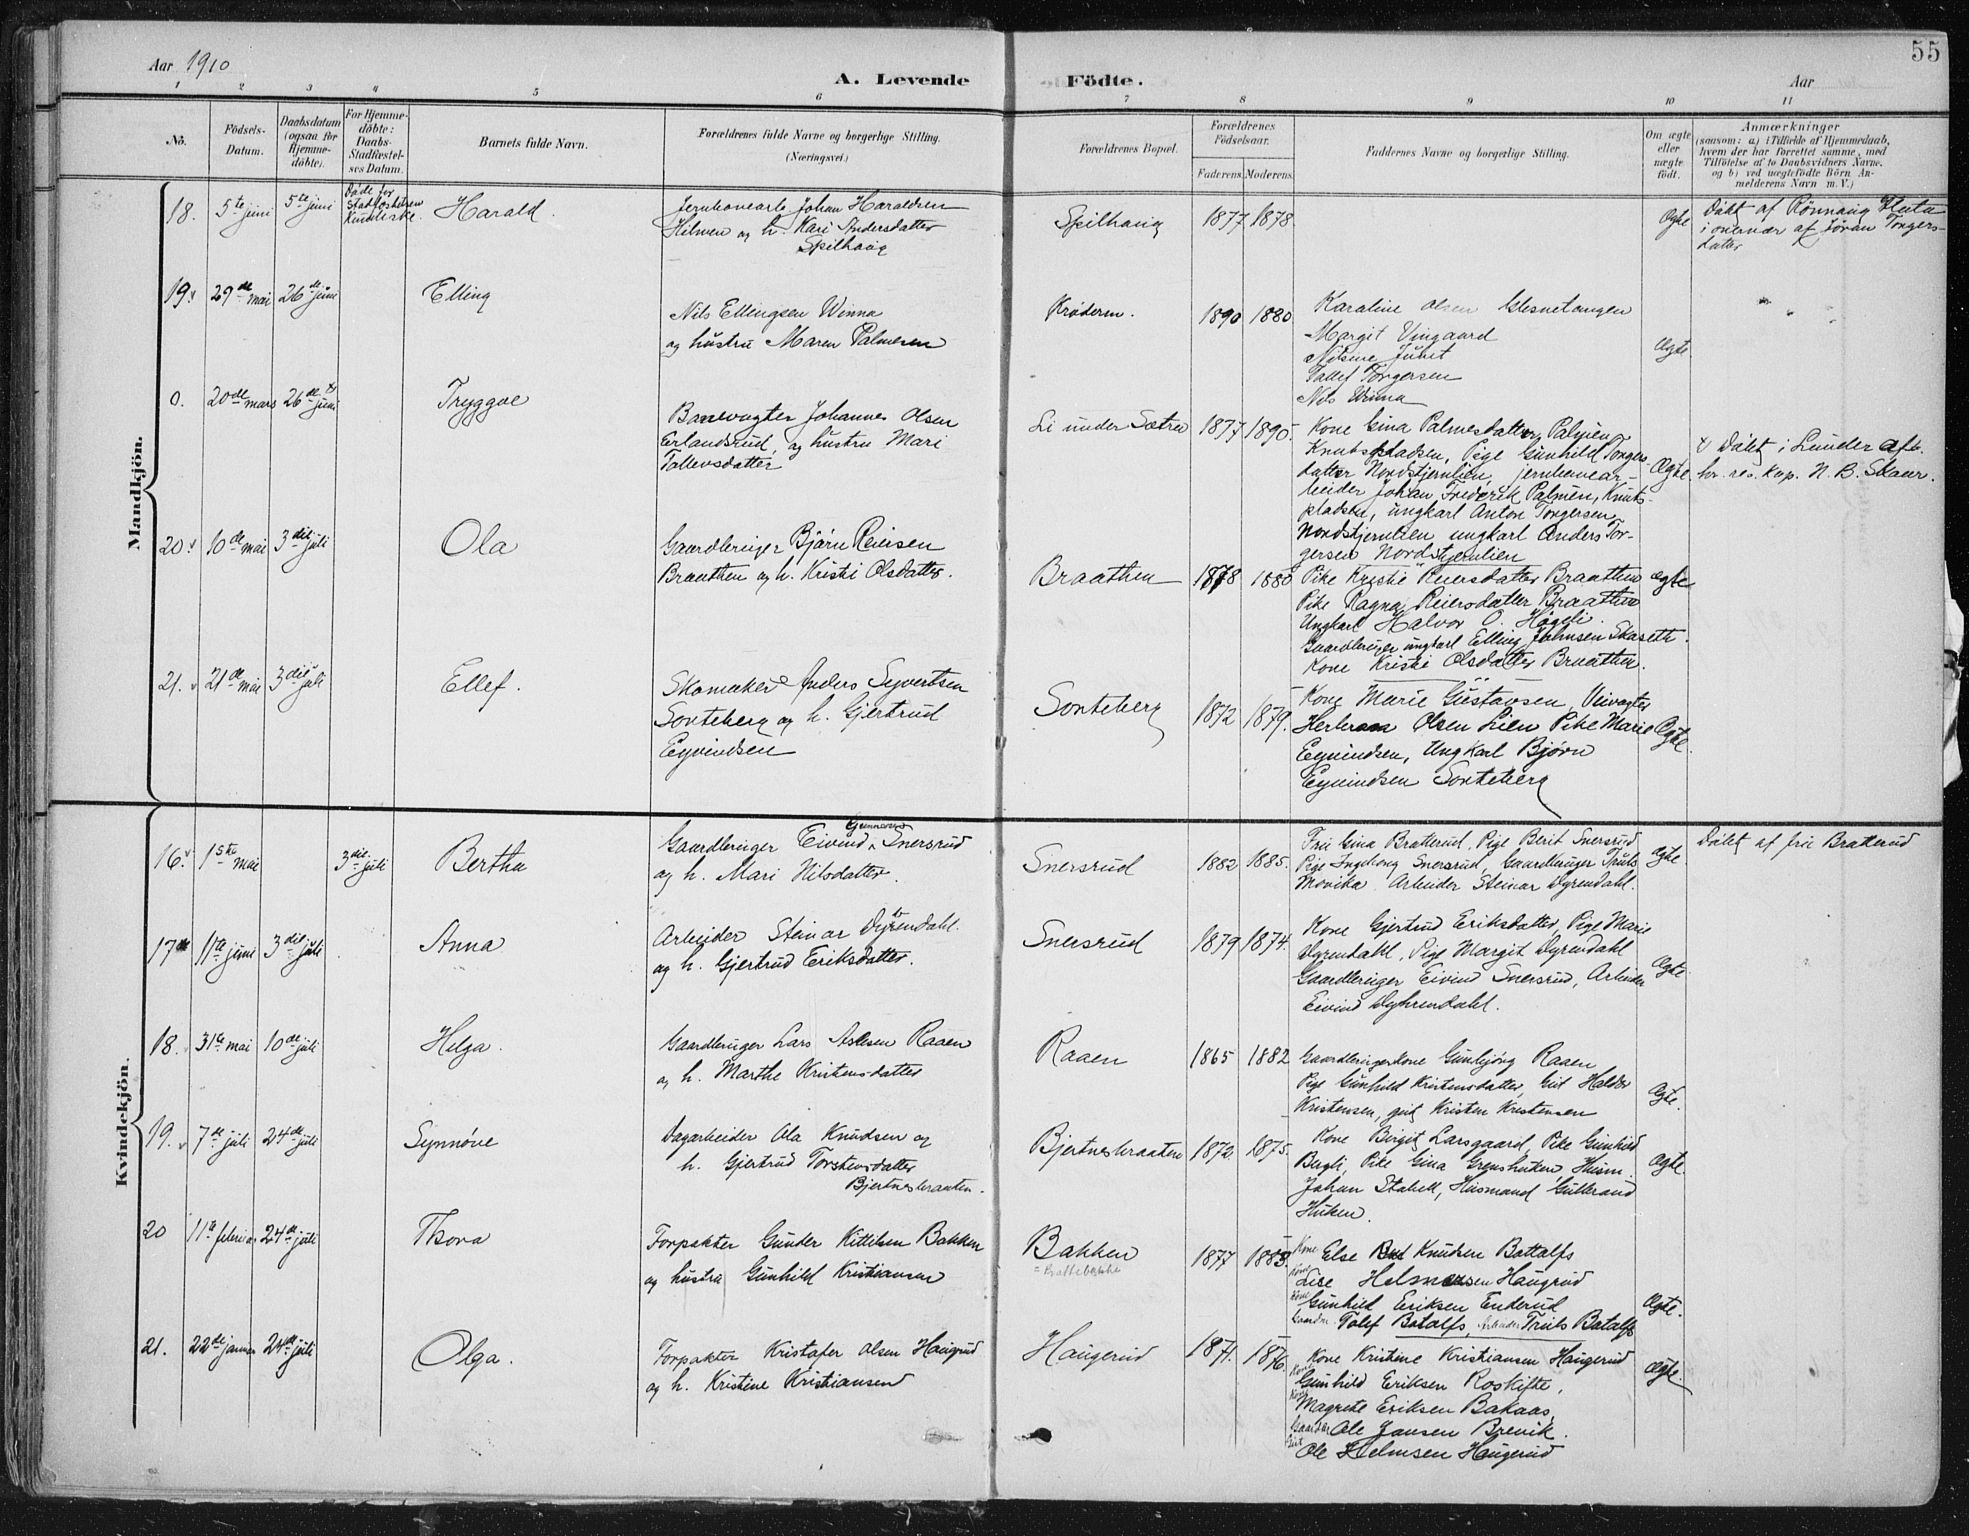 Aar 1910
A. Levende Födte.
Aar
55
1 2 3 4 5 6 7 8 9 10 11
No.
Födsels-Datum.
Daabsdatum (ogsaa for Hjemme-döbte).
For Hjemme-döbte: Daabs-Stadfæstel-ses Datum.
Barnets fulde Navn.
Forældrenes fulde Navne og borgerlige Stilling. (Næringsvei.)
Forældrenes Bopæl.
Forældrenes Födselsaar.
Faderens. Moderens.
Faddernes Navne og borgerlige Stilling.
Om ægte eller uægte födt.
Anmærkninger
(saasom: a) i Tilfælde af Hjemmedaab, hvem der har forrettet samme, med Tilföielse af to Daabsvidners Navne, og b) ved uægtefödte Börn An-melderens Navn m. V.)
Mandkjön.
18. 5te juni 5te juni Döde før Stadfæstelsen Harald.
Jernbanearb. Johan Haraldsen
Hilmen og h. Kari Andersdatter
Spilhaug
Spilhaug 1877 1878 Ægte
Döbt af Rönnaug
i nærvær af Jöran Torgers-
datter
19. 29de mai 26de juni Elling
Nils Ellingsen Winna
og hustru Maren Palmesen
Krøderen. 1890 1880
Karoline Olsen Glesnetangen
Margit Vingaard
Nilsine Juvet
Tollef Torgersen
Nils Winna
Ægte
0. 20de mars 26de juni Tryggve
Banevogter Johannes Olsen
Erlandsrud, og hustru Mari
Tollevsdatter
Li under Sætra 1877 1890.
Kone Gina Palmesdatter Palmen
Knutspladsen, Pige Gunhild Torgers-
datter Nordstjernlien, jernbanear-
beider Johan Frederik Palmen, Knuts-
pladsen, ungkarl Anton Torgersen,
Nordstjernlien ungkarl Anders Tor-
gersen Nordstjernlien
Ægte.
x Döbt i Lunder af
hr. res. kap. N. B. Skaar.
20. 10de mai 3die juli Ola
Gaardbruger Bjørn Reiersen
Braathen og h. Kristi Olsdatter.
Braathen 1878 1880
Pike Kristie Reiersdatter Braathen
Pike Ragna Reiersdatter Braathen
Ungkarl Halvor O. Hageli.
Gaardbruger ungkarl Elling Johnsen Skaseth.
Kone Kristi Olsdatter Braathen.
Ægte
21. 21de mai 3die juli Ellef.
Skomaker Anders Syvertsen
Sorteberg og h. Gjertrud
Eyvindsen
Sorteberg 1872 1879.
Kone Marie Gustavsen, Veivogter
Herbran Olsen Lien Pike Marie
Eyvindsen, Ungkarl Bjørn
Eyvindsen Sorteberg
Ægte.
Kvindekjön.
16. 1ste mai 3die juli Bertha
Gaardbruger Eivind Gunnersen Snersrud
og h. Mari Nilsdatter.
Snersrud 1882 1885.
Fru Gina Bratterud, Pige Berit Snersrud
Pige Ingeborg Snersrud, Gaardbruger Truls
Movika. Arbeider Steinar Dyrendahl.
Ægte
Döbt af fru Bratterud
17de 11te juni 3die juli Anna
Arbeider Steinar Dyrendahl.
og h. Gjertrud Eriksdatter.
Snersrud 1879 1874.
Kone Gjertrud Eriksdatter, Pige Marie
Dyrendahl, Pige Margit Dyrendahl
Gaardbruger Eivind Snersrud, Arbeider
Eivind Dyhrendahl.
Ægte
18. 31te mai 10de juli Helga.
Gaardbruger Lars Aslesen Raaen
og h. Marthe Kristensdatter
Raaen 1865 1882
Gaardbrugerkone Gunbjørg Raaen
Pige Gunhild Kristensdatter, Gut Haldor
Kristensen, gut Kristen Kristensen
Ægte.
19. 7de juli 24de juli Synnöve
Dagarbeider Ola Knudsen og
h. Gjertrud Torstensdatter
Bjertnesbraaten.
Bjertnesbraaten 1872. 1875.
Kone Birgit Larsgaard, Pike Gunhild
Bugli, Pike Gina Grenshuken Husm.
Johan Stabek, Husmand Gulbrand
Huken.
Ægte.
20 11te februar 24de juli Thora
Forpakter Gunder Kittilsen Bakken
og hustru Gunhild Kristiansen
Bakken
= Brattebakke
1877 1883.
Kone Else Knudsen Battalfs
Kone Lise Helmersen Haugrud
Kone Gunhild Eriksen Enderud
Gaardm. Tolef Batalfs, Arbeider Truls Batalfs
Ægte.
21. 22de januar 24de juli Olga.
Forpakter Kristofer Olsen Haugrud
og h. Kristine Kristiansen
Haugerud 1871. 1876.
Kone Kristine Kristiansen Haugerud
Kone Gunhild Eriksen Roskifte,
Kone Magrete Eriksen Bakaas,
Gaardbr. Ole Jansen Brevik.
Gut Ole Helmsen Haugerud
Ægte.